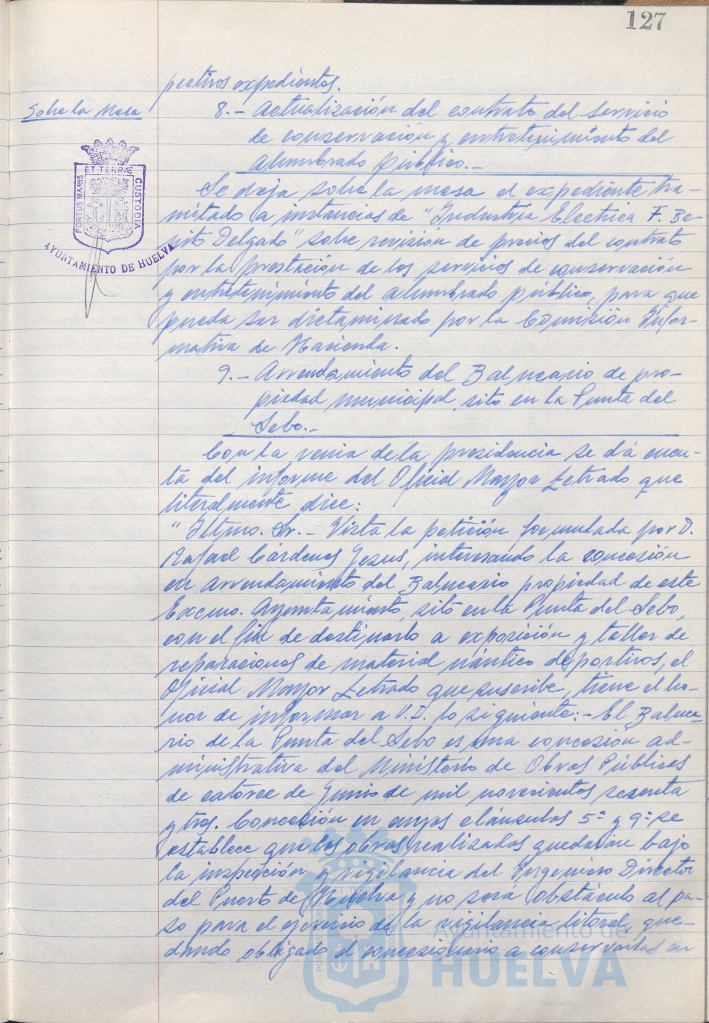 127
pectivos expedientes.
Sobre la Mesa
8.- Actualización del contrato del servicio
de conservación y entretenimiento del
Alumbrado Público.-
PORTUS MARIS ET TERRÆ CUSTODIA
AYUNTAMIENTO DE HUELVA
Se deja sobre la mesa el expediente tra-
mitado a instancias de "Industria Electrica F. Be-
nito Delgado" sobre revisión de precios del contrato
por la prestación de los servicios de conservación
y entretenimiento del alumbrado público, para que
pueda ser dictaminado por la Comisión Infor-
mativa de Hacienda.
9.- Arrendamiento del Balneario de pro-
piedad municipal, sito en la Punta del
Sebo.-
Con la venia de la presidencia se dá cuen-
ta del informe del Oficial Mayor Letrado que
literalmente dice:
"Iltmo. Sr.- Vista la petición formulada por D.
Rafael Cárdenas, interesando la concesión
en arrendamiento del Balneario propiedad de este
Excmo. Ayuntamiento, sito en la Punta del Sebo,
con el fin de destinarlo a exposición y taller de
reparaciones de material náutico deportivos, el
Oficial Mayor Letrado que suscribe, tiene el ho-
nor de informar a V.I. lo siguiente:- El Balnea-
rio de la Punta del Sebo es una concesión ad-
ministrativa del Ministerio de Obras Públicas
de catorce de Junio de mil novecientos sesenta
y tres. Concesión en cuyas cláusulas 5ª y 9ª se
establece que las obras realizadas quedarán bajo
la inspección y vigilancia del Ingeniero Director
del Puerto de Huelva y no será obstáculo al pa-
so para el ejercicio de la vigilancia litoral, que-
dando obligado el concesionario a conservarlas en
Ayuntamiento de
HUELVA